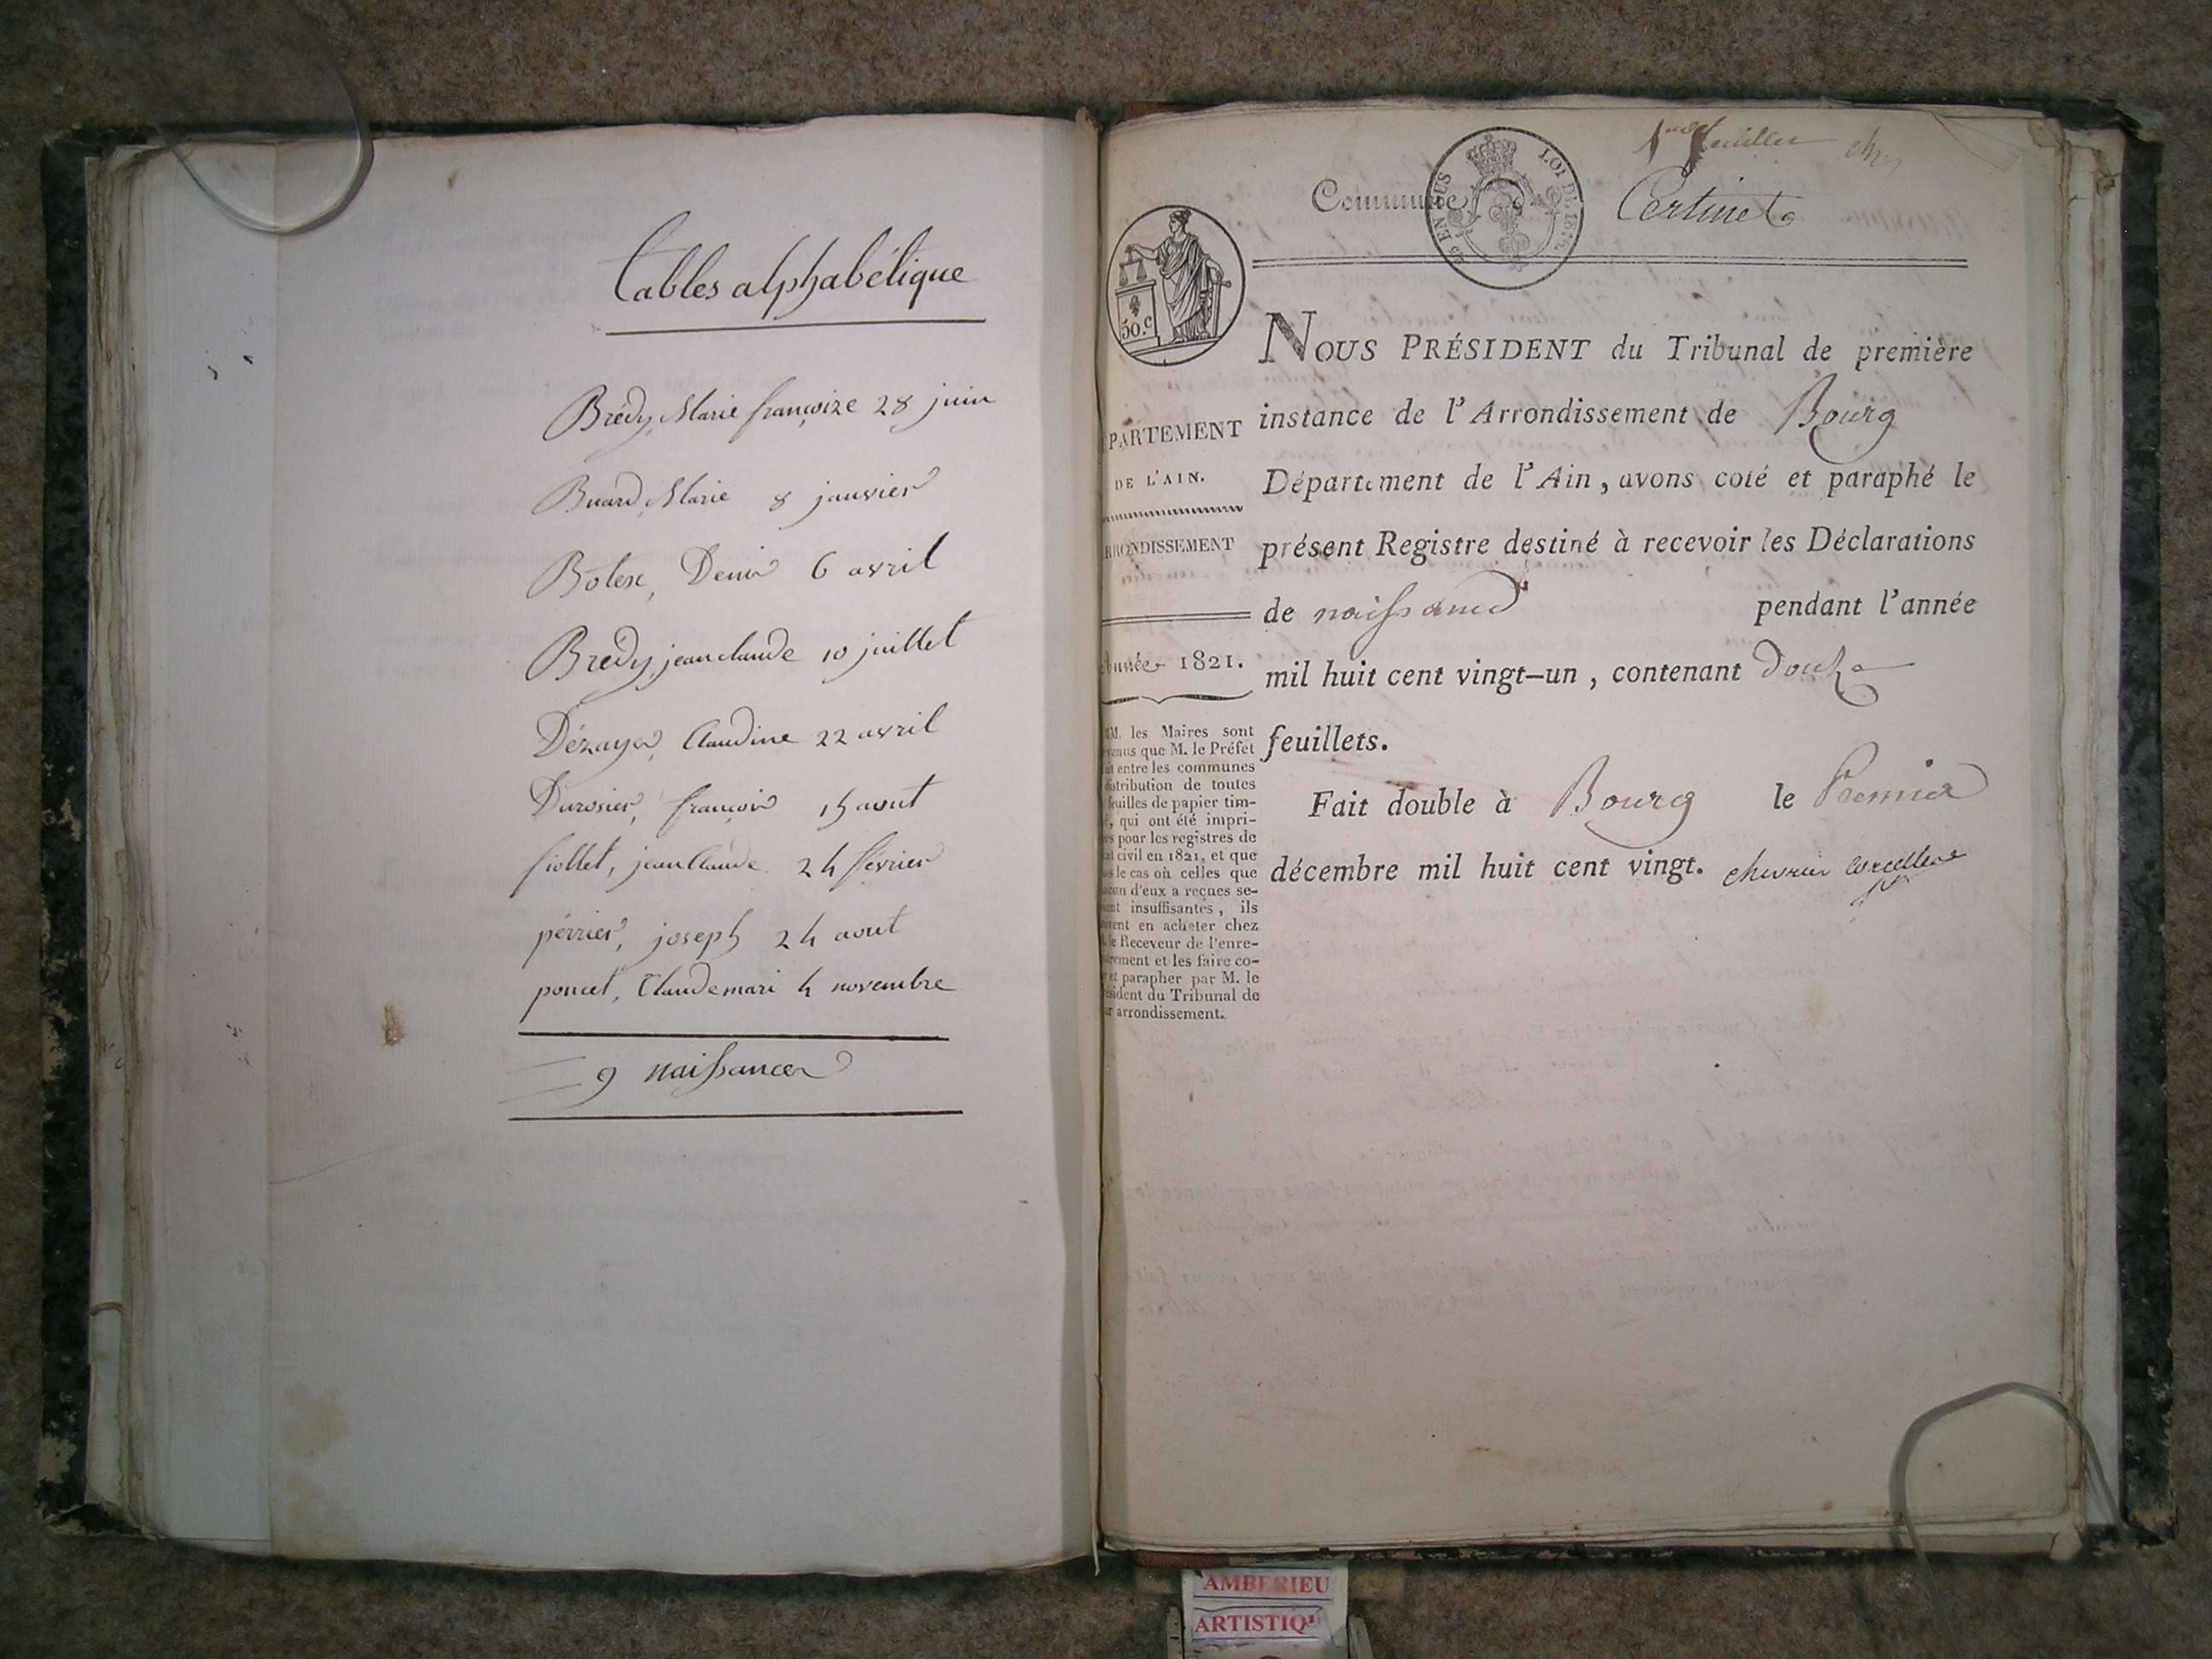 Tables alphabétique
Brédy, Marie françoize 28 juin
Buard, Marie 8 janvier
Bolex, Denis 6 avril
Brédy, jean claude 10 juillet
Dézayes, Claudine 22 avril
Durosier, françois 15 aout
fiollet, jean Claude 24 février
périer, joseph 24 aout
poncet, Claudemari 4 novembre
9 naissances
1er feuillet
Commune Certines
LOI DE 1816.
EN SUS
50.c
PARTEMENT
DE L'AIN.
RRONDISSEMENT
Année 1821.
M. les Maires sont
venus que M. le Préfet
it entre les communes
istribution de toutes
feuilles de papier tim-
, qui ont été impri-
es pour les registres de
at civil en 1821, et que
s le cas où celles que
acun d'eux a reçues se-
ent insuffisantes, ils
vent en acheter chez
le Receveur de l'enre-
trement et les faire co-
et parapher par M. le
ésident du Tribunal de
ur arrondissement.
NOUS PRÉSIDENT du Tribunal de première
instance de l'Arrondissement de Bourg
Département de l'Ain, avons coté et paraphé le
présent Registre destiné à recevoir les Déclarations
de naissance pendant l'année
mil huit cent vingt-un, contenant Douze
feuillets.
Fait double à Bourg le Premier
décembre mil huit cent vingt. chevrier corcelles
AMBERIEU
ARTISTIQ